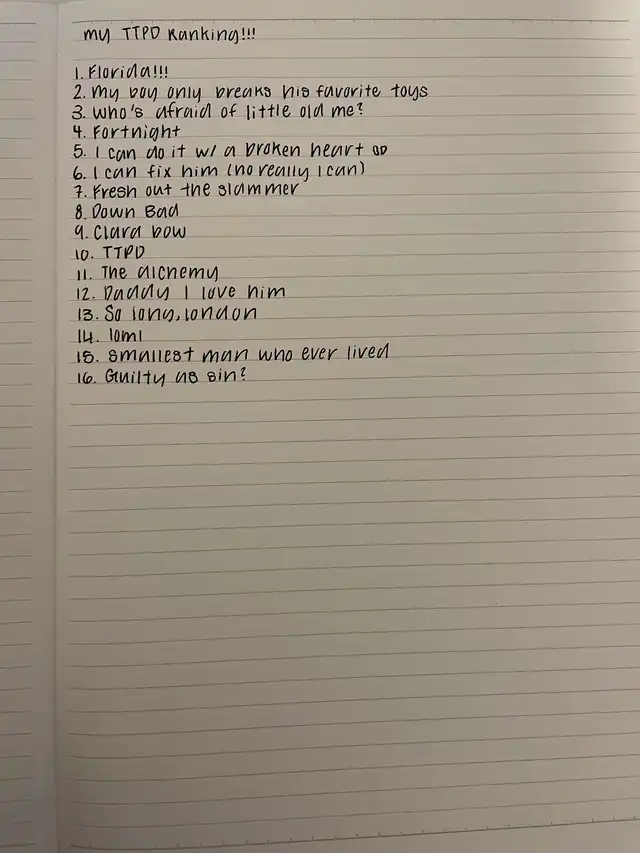 my TTPD Ranking!!!
1. Florida!!!
2. My boy only breaks his favorite toys
3. Who's afraid of little old me?
4. Fortnight
5. I can do it w/ a broken heart
6. I can fix him (no really I can)
7. Fresh out the slammer
8. Down Bad
9. Clara bow
10. TTPD
11. The alchemy
12. Daddy I love him
13. So long, london
14. loml
15. smallest man who ever lived
16. Guilty as sin?